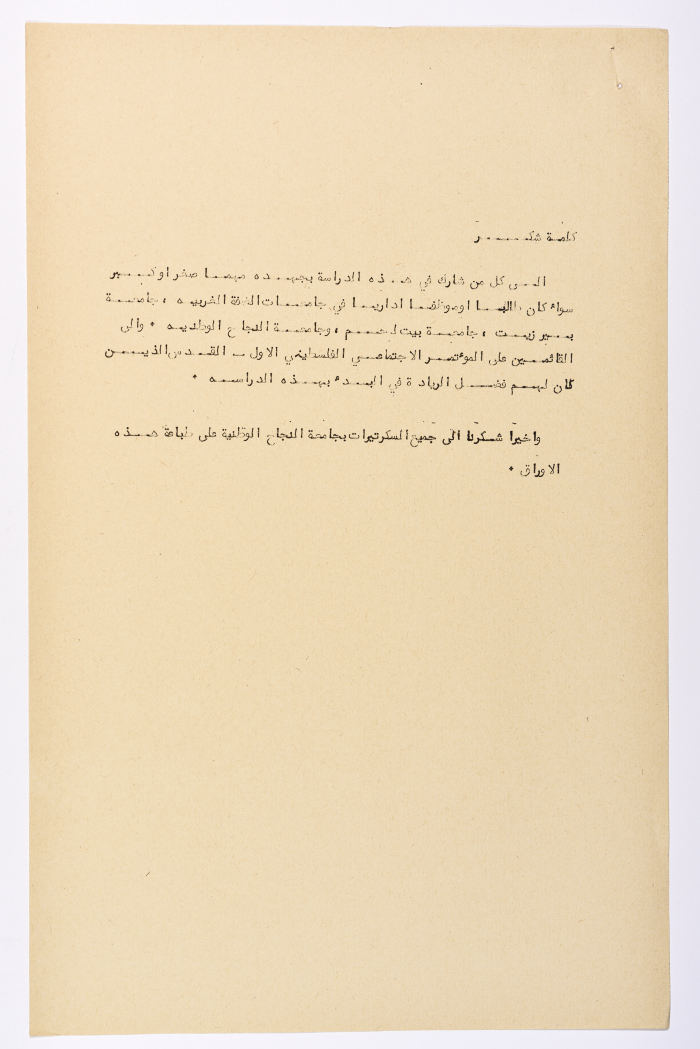 كلمة شكـــــر
الــى كل من شارك في هــذه الدراسة بجهــده مهمــا صغر او كبــير
سواء كان طالبـــا او موظفــا اداريــا في جامعــات الضفة الغربيــه ، جامعــة
بــير زيــت ، جامعــة بيت لحــم ، وجامعــة النجاح الوطنيــه . والى
القائمــين على المؤتمــر الاجتماعــي الفلسطيني الاول ــ القــدس الذيــن
كان لهــم فضــل الريادة في البــدء بهــذه الدراســه .
واخيرا شــكرنا الى جميع السكرتيرات بجامعة النجاح الوطنية على طباعة هــذه
الاوراق .